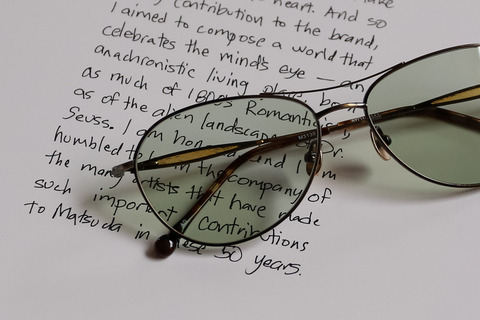 contribution to the brand,
heart. And so
I aimed to compose a world that
celebrates the mind's eye — an
anachronistic living
as much of 1800s Romantic
as of the alien landscape Dr.
Seuss. I am honored and I am
humbled to be in the company of
the many artists that have made
such important contributions
to Matsuda in these 50 years.
M3138